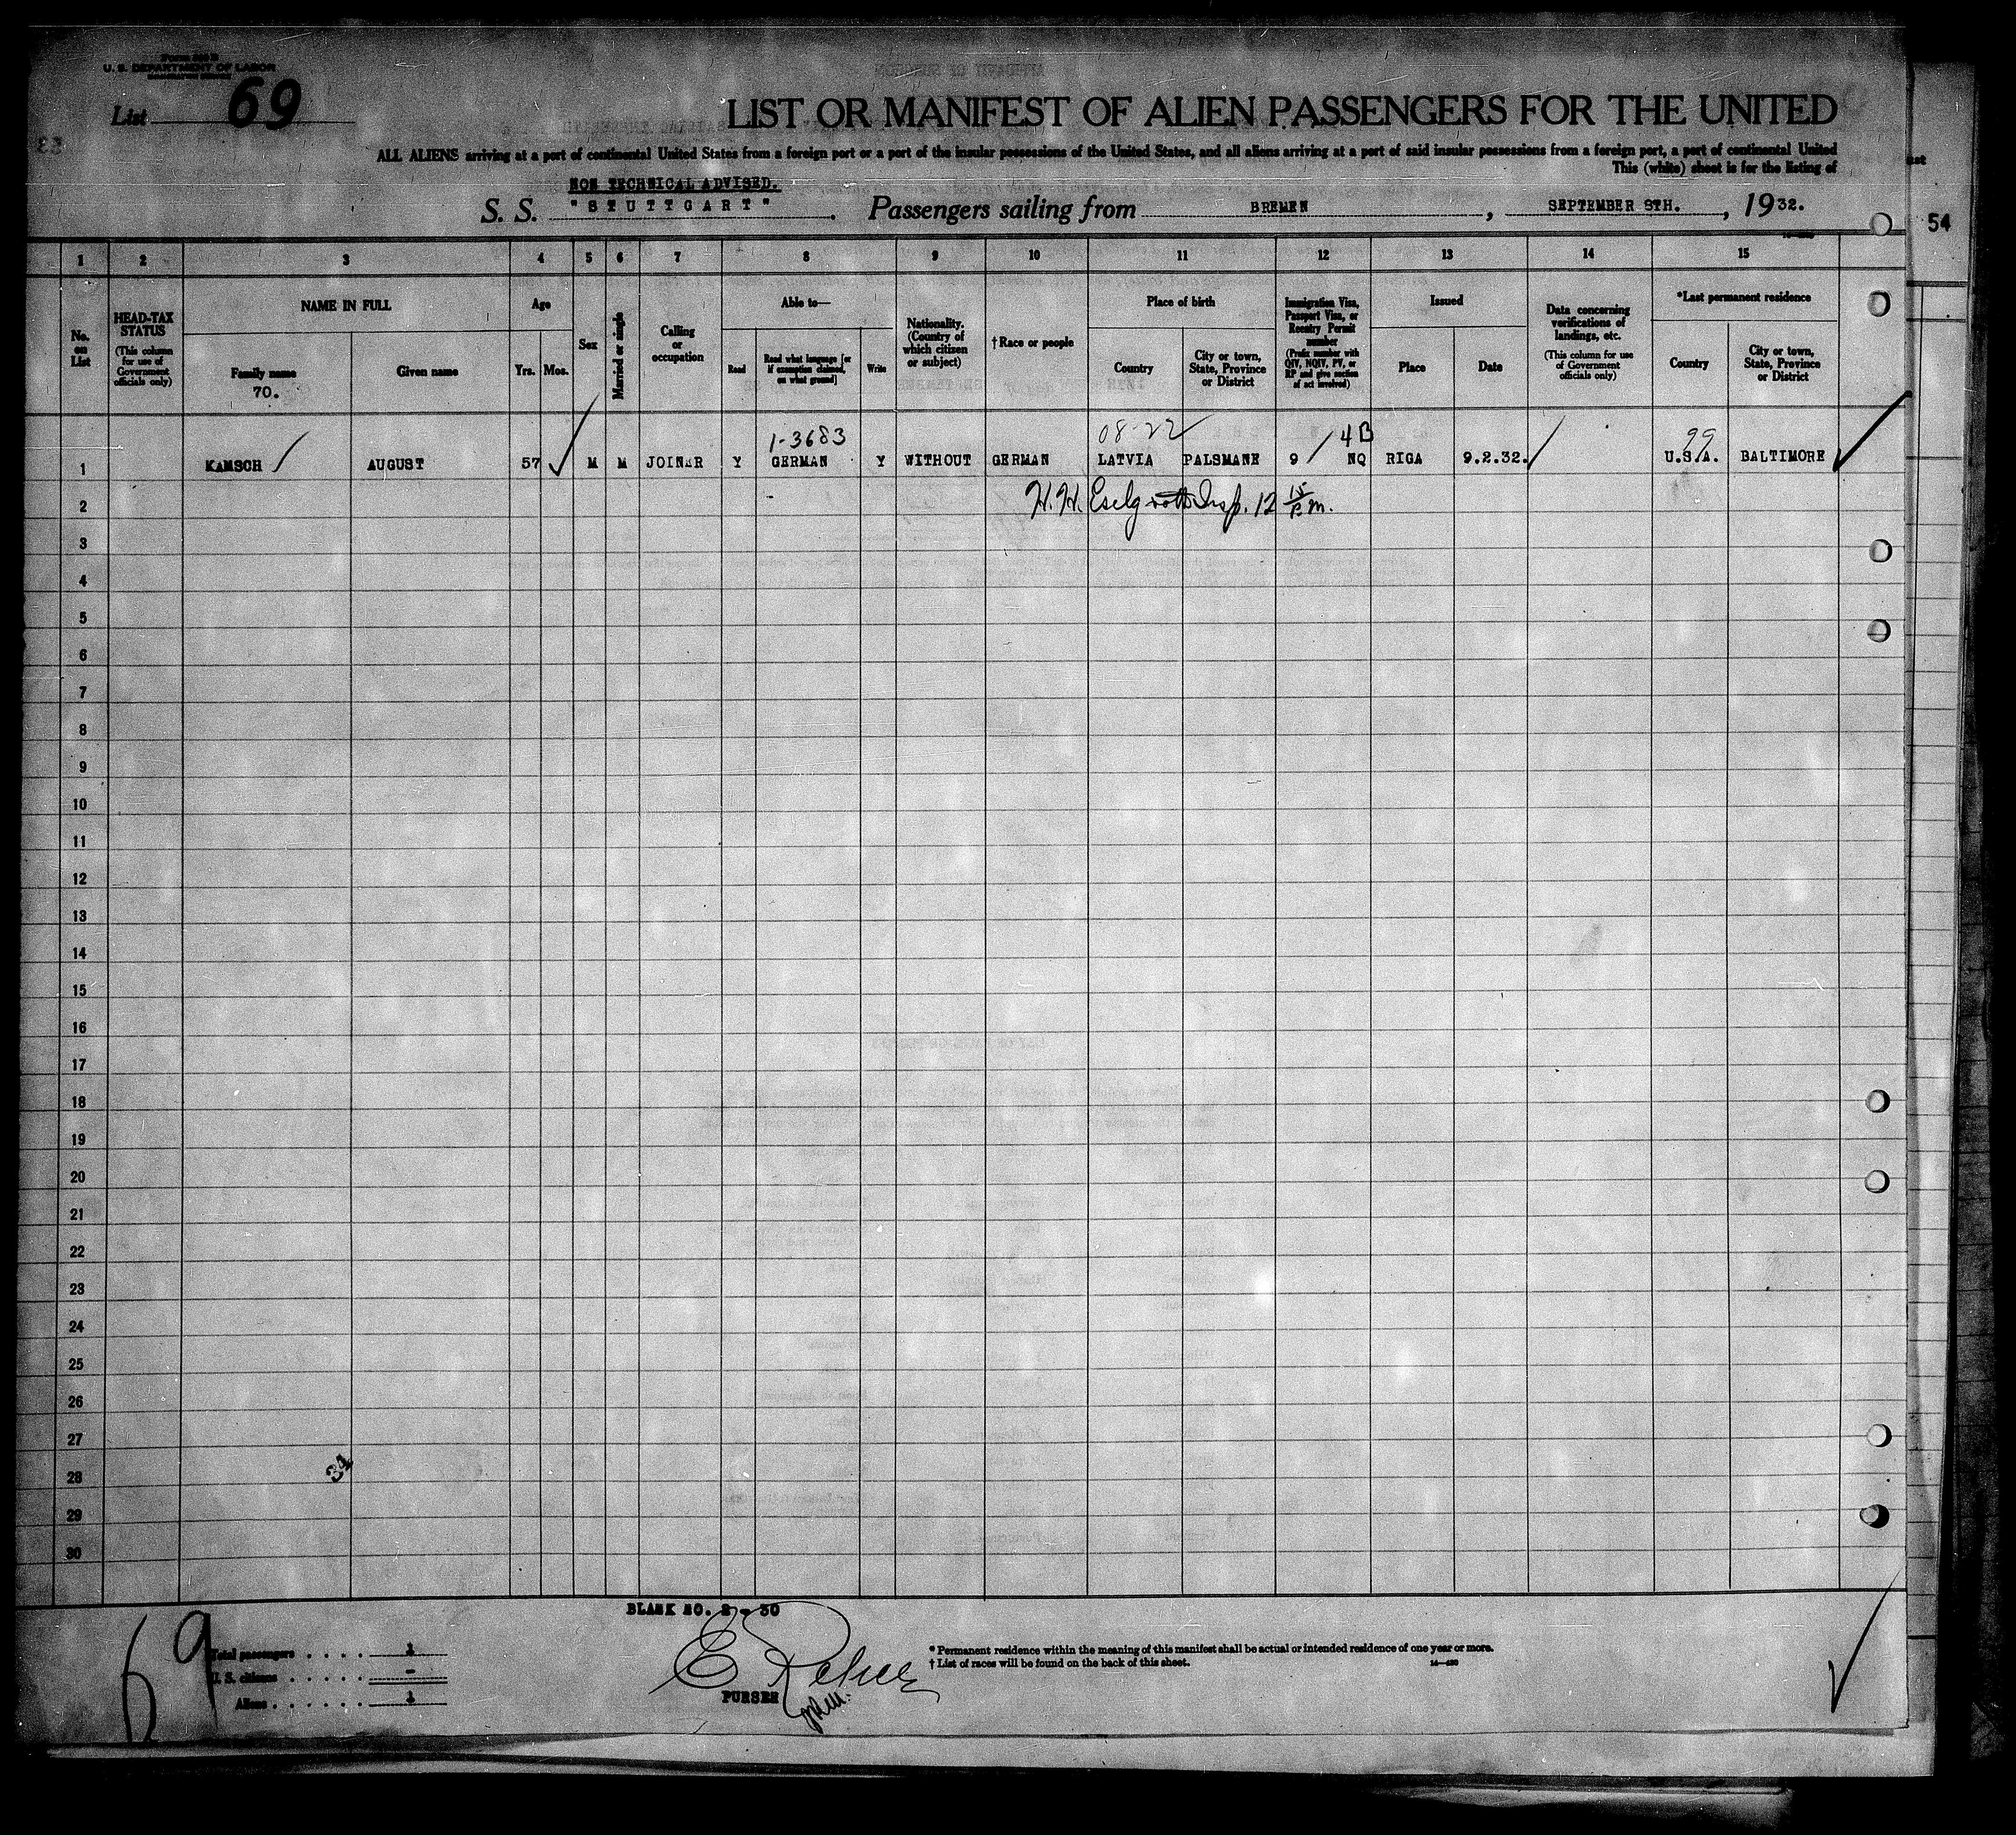 U. S. DEPARTMENT OF LABOR
List 69
LIST OR MANIFEST OF ALIEN PASSENGERS FOR THE UNITED
ALL ALIENS arriving at a port of continental United States from a foreign port or a port of the insular possessions of the United States, and all aliens arriving at a port of said insular possessions from a foreign port, a port of continental United
This (white) sheet is for the listing of
NON TECHNICAL ADVISED.
S. S. "STUTTGART" Passengers sailing from BREMEN, SEPTEMBER 8TH., 1932.
54
1 2 3 4 5 6 7 8 9 10 11 12 13 14 15
No. on List
HEAD-TAX STATUS
(This column for use of Government officials only)
NAME IN FULL
Family name
70.
Given name
Age
Yrs. Mos.
Sex
Married or single
Calling or occupation
Able to—
Read
Read what language [or if exemption claimed, on what ground]
Write
Nationality. (Country of which citizen or subject)
†Race or people
Place of birth
Country
City or town, State, Province or District
Immigration Visa, Passport Visa, or Reentry Permit number
(Prefix number with QIV, NQIV, PV, or RP and give section of act involved)
Issued
Place
Date
Data concerning verifications of landings, etc.
(This column for use of Government officials only)
*Last permanent residence
Country
City or town, State, Province or District
1-3683 08-22 4B 99
1 KAMSCH AUGUST 57 M M JOINER Y GERMAN Y WITHOUT GERMAN LATVIA PALSMANE 9 NQ RIGA 9.2.32. U.S.A. BALTIMORE
2 H.H. Insp. 12 15 m.
3
4
5
6
7
8
9
10
11
12
13
14
15
16
17
18
19
20
21
22
23
24
25
26
27
28
34
29
30
BLANK NO. 2 - 30
69
Total passengers . . . . 1
U. S. citizens . . . . . -
Aliens . . . . . . 1
PURSER
* Permanent residence within the meaning of this manifest shall be actual or intended residence of one year or more.
† List of races will be found on the back of this sheet.